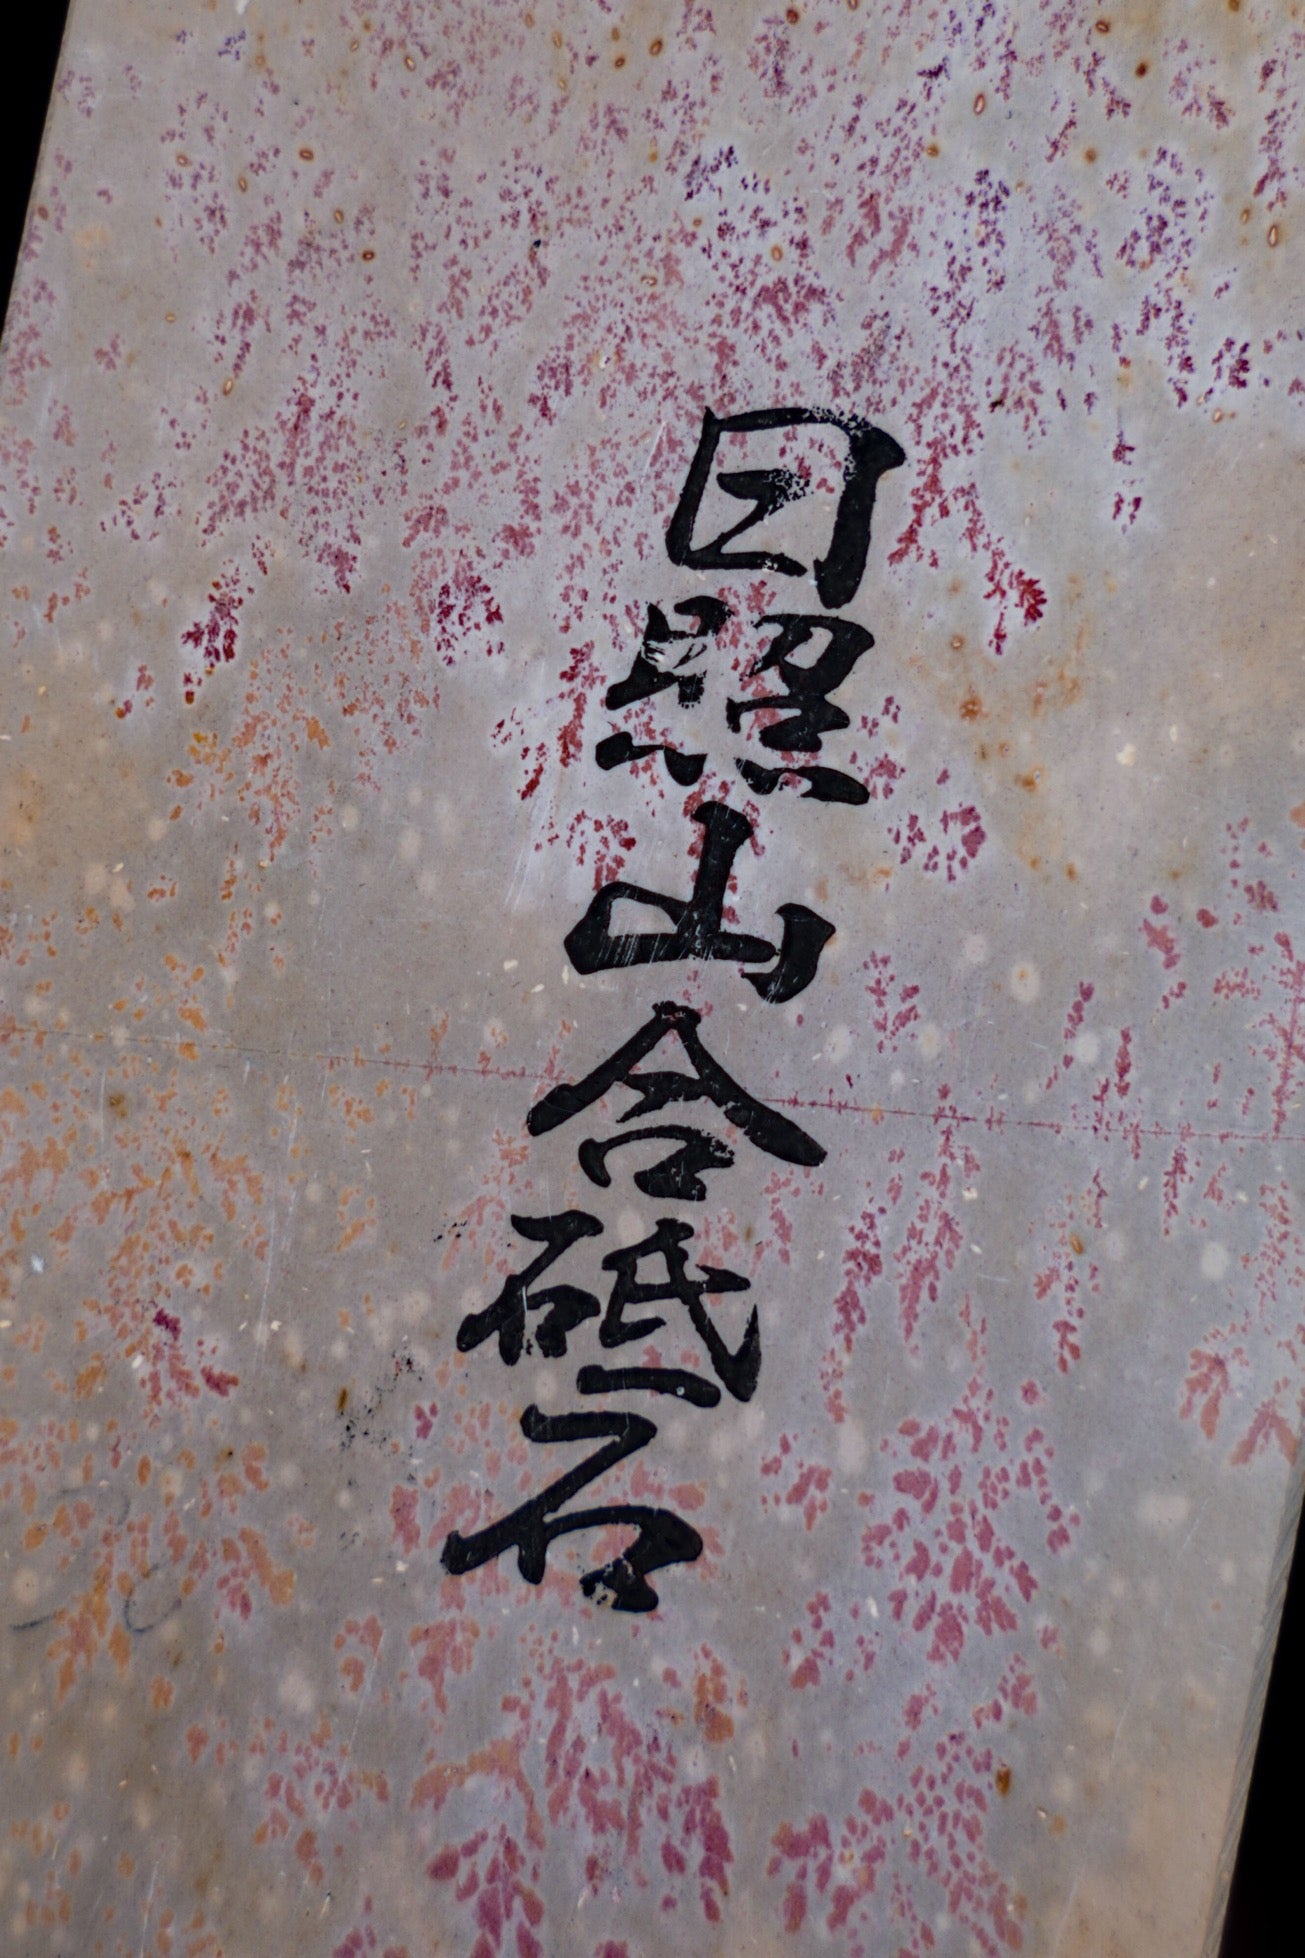 日照山合砥石